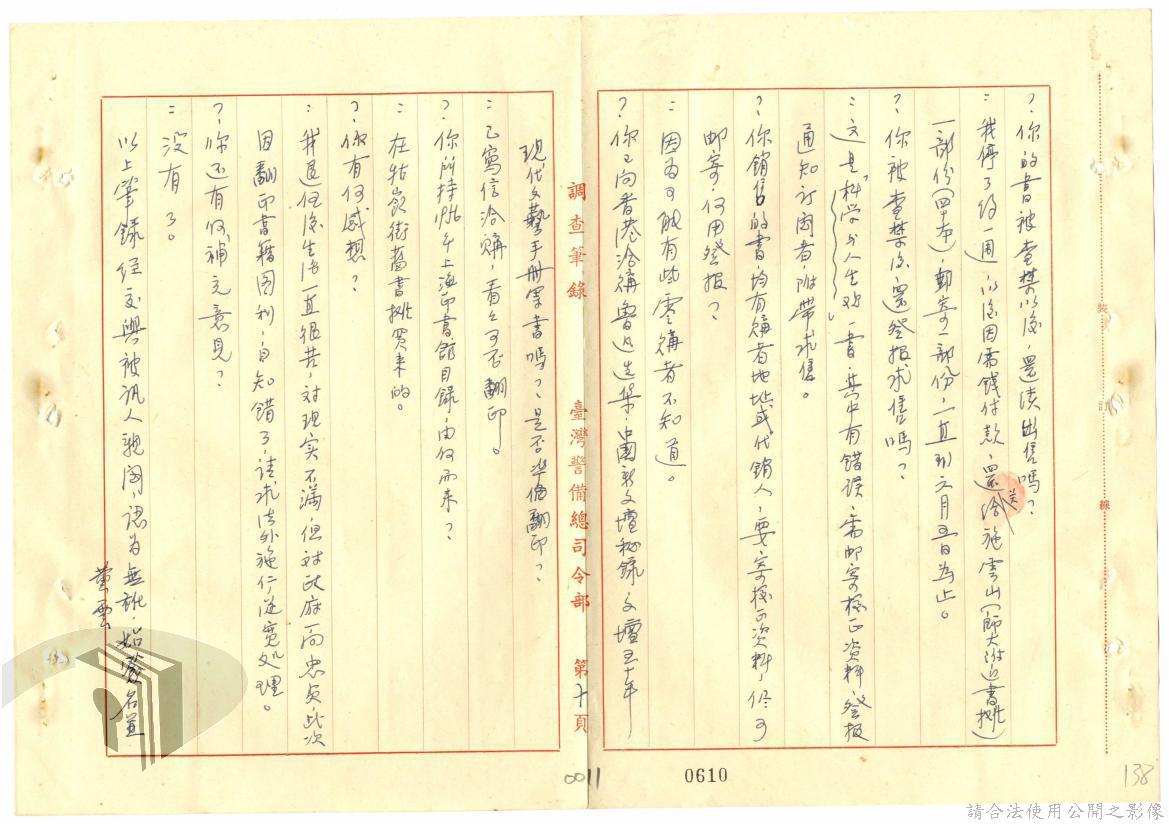 ？你的書被查禁以後，還續出售嗎？
：我停了約一週，以後因需錢付款，還送給施雲山（師大附近書攤）
一部份（四十本），郵寄一部份，一直到六月五日為止。
？你被查禁後，還登报求售嗎？
：这是「科学与人生观」一書，其中有錯误，需邮寄校正资料，登报
通知订閱者，附带求售。
？你銷售的書，均有購者地址或代銷人，要寄校正资料，尽可
邮寄，何用登报？
：因为可能有些零購者不知道。
？你已向香港洽購魯迅选集、中國新文壇秘錄、文壇五十年
現代文藝手册等書嗎？是否準備翻印？
：已寫信洽購，看看可否翻印。
？你所持
上海印書館目録，由何而來？
：在牯嶺街舊書攤買來的。
？你有何感想？
：我退伍後生活一直很苦，对現实不滿，但对政府一向忠贞，此次
因翻印書籍圖利，自知錯了，請求法外施仁，從寬处理。
？你还有何補充意見？
：没有了。
以上筆錄经交與被訊人親閱，認为無訛，始簽名蓋
調查筆錄
臺灣警備總司令部
第十頁
裝
訂
線
0011
0610
138
請合法使用公開之影像